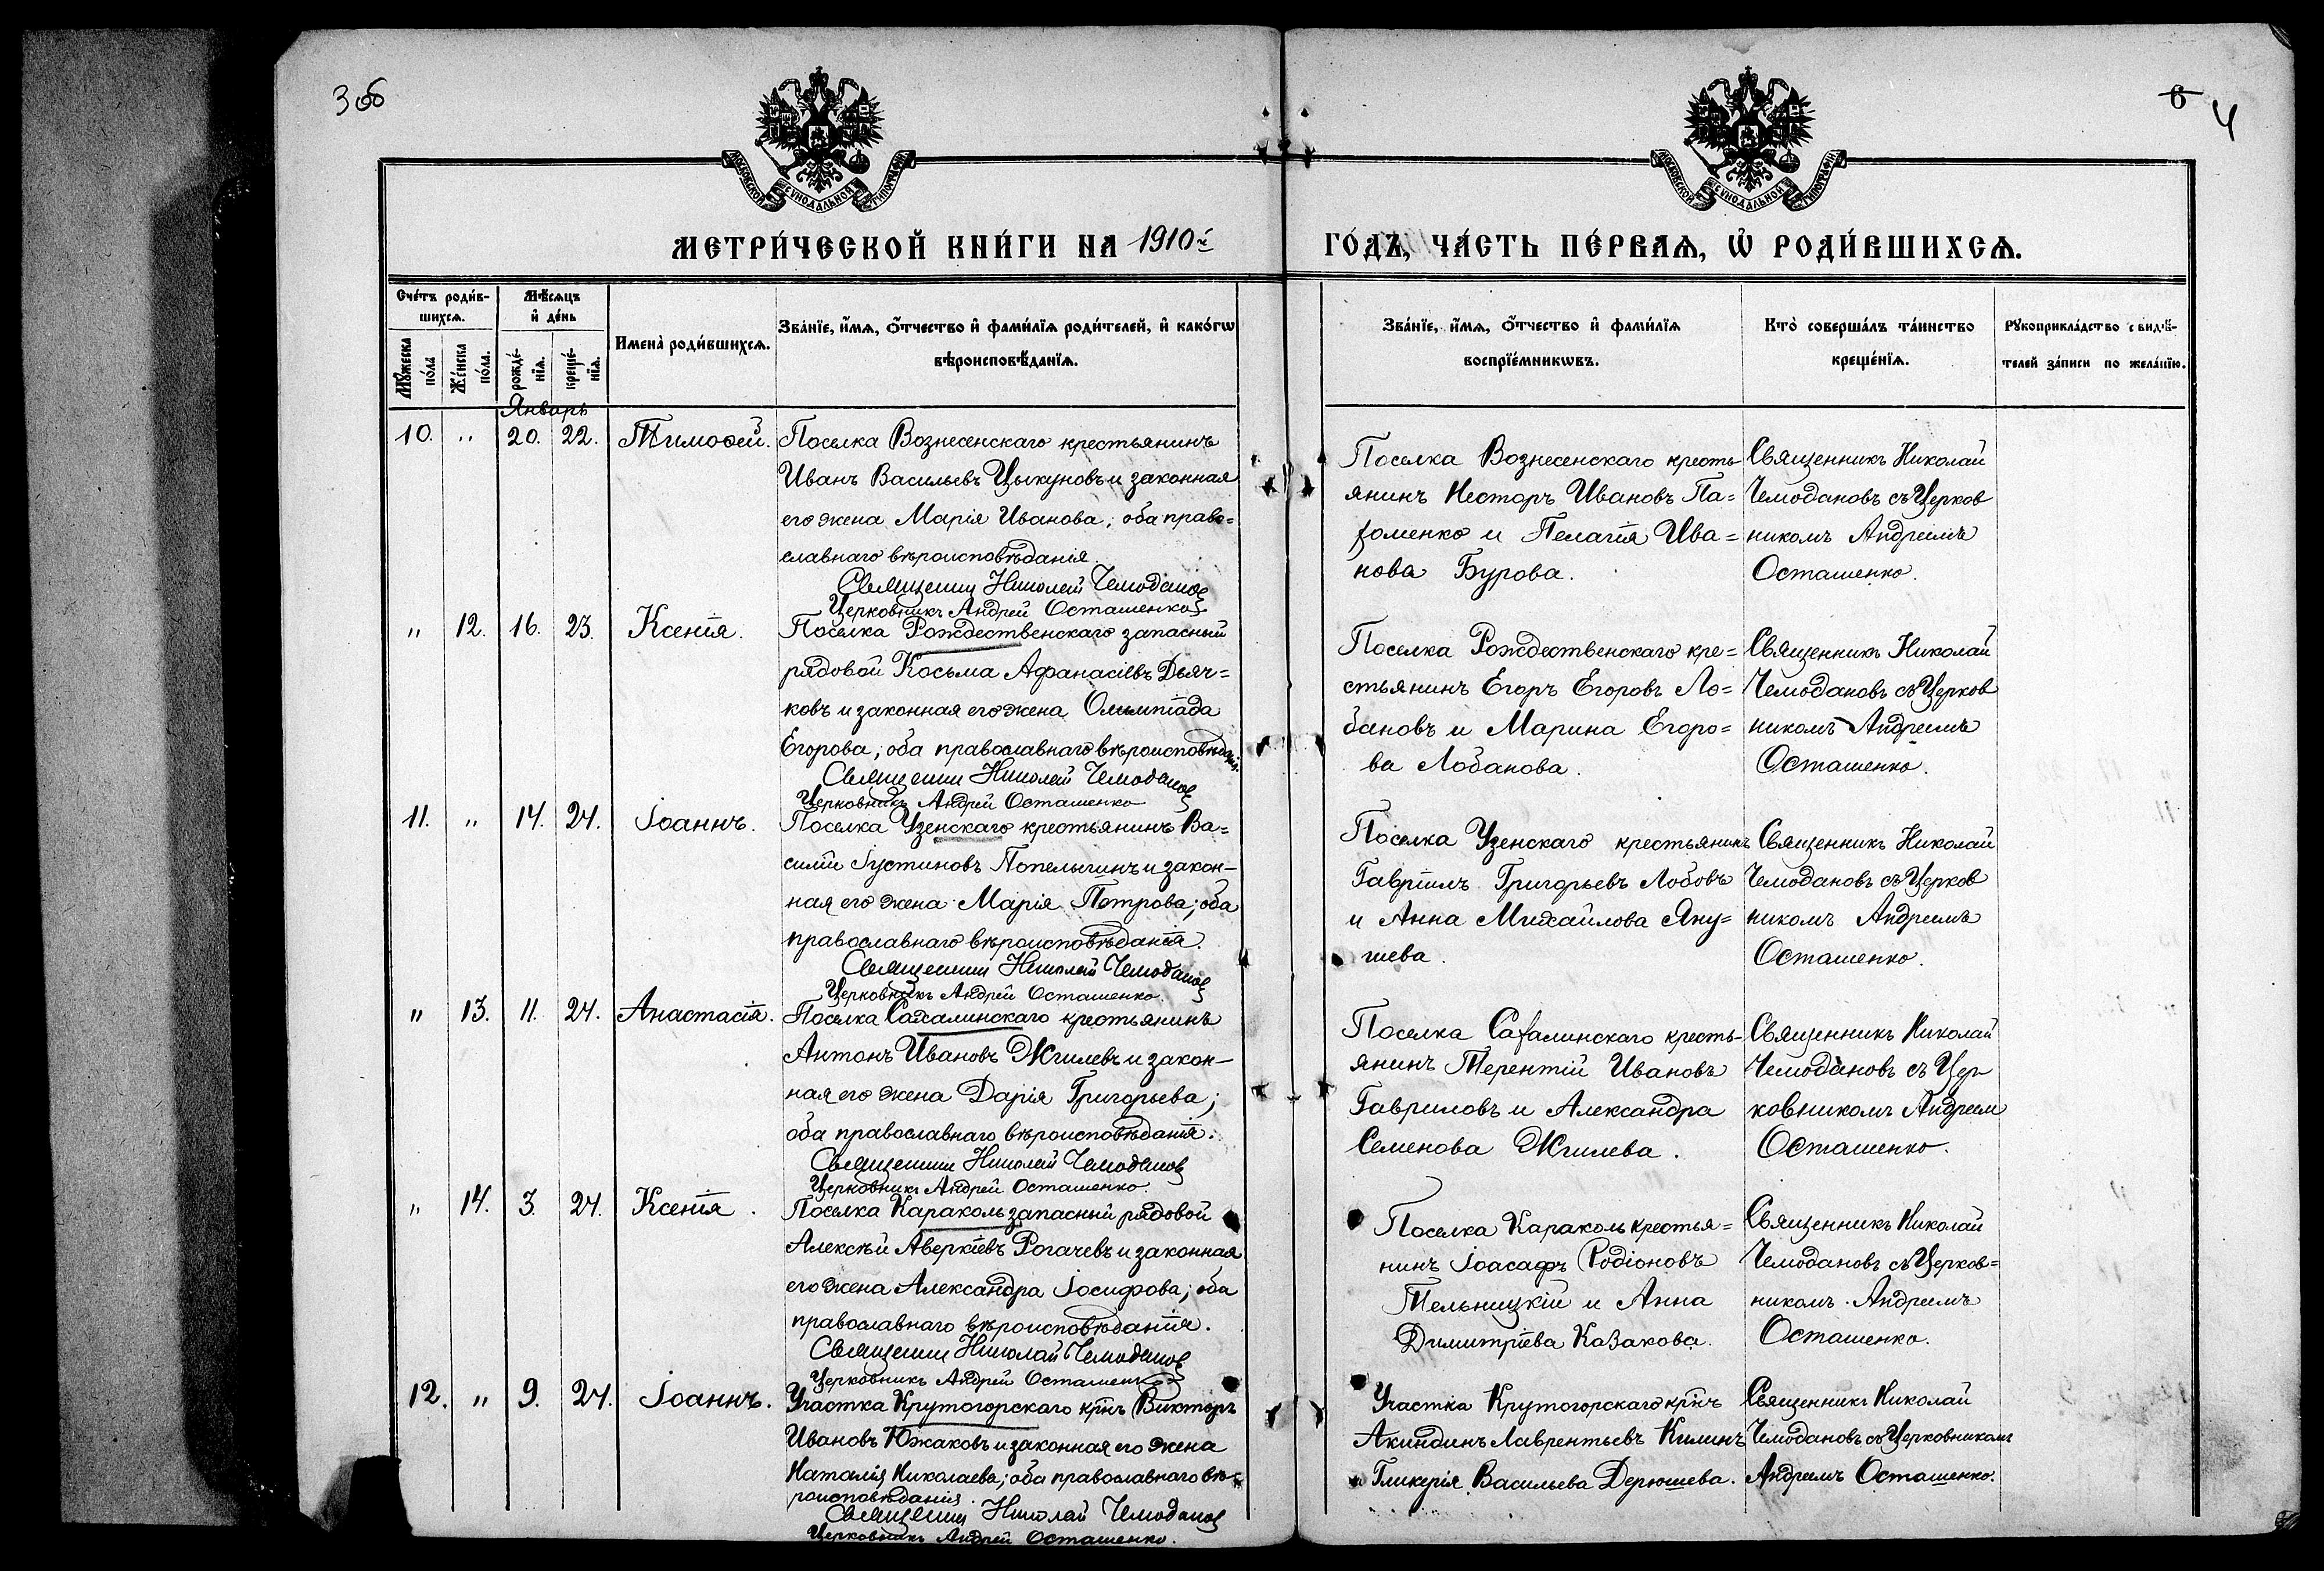 3 об
6
4
МОСКОВСКОЙ СѴНОДАЛЬНОЙ ТИПОГРАФІИ
МОСКОВСКОЙ СѴНОДАЛЬНОЙ ТИПОГРАФІИ
МЕТРИ́ЧЕСКОЙ КНИ́ГИ НА 1910й
ГО́ДЪ, ЧА́СТЬ ПЕ́РВАѦ, Ѡ҆ РОДИ́ВШИХСѦ.
Сче́тъ роди́в-
шихсѧ.
Мѣ́сѧцъ
и҆ де́нь
Мꙋ́жеска
по́ла
Же́нска
по́ла.
рожде́-
нїѧ.
креще́-
нїѧ.
Имена̀ роди́вшихсѧ.
Зва́нїе, и҆́мѧ, ѻ҆́тчество и҆ фами́лїѧ роди́телей, и҆ како́гѡ
вѣроисповѣ́данїѧ.
Зва́нїе, и҆́мѧ, ѻ҆́тчество и҆ фами́лїѧ
воспрїе́мникѡвъ.
Кто̀ соверша́лъ та́инство
креще́нїѧ.
Рꙋкоприкла́дство свидѣ́-
телей за́писи по жела́нїю.
Январь
10. " 20. 22. Тимоѳей.
Поселка Вознесенскаго крестьянинъ
Иванъ Васильевъ Цыкуновъ и законная
его жена Марія Иванова; оба право=
славнаго вѣроисповѣданія.
Священник Николай Чемоданов
Церковникъ Андрей Осташенко
Поселка Вознесенскаго кресть-
янинъ Несторъ Ивановъ Па=
хоменко и Пелагія Ива=
нова Бурова.
Священникъ Николай
Чемодановъ съ Церков
никомъ Андреемъ
Осташенко.
" 12. 16. 23. Ксенія.
Поселка Рождественскаго запасный
рядовой Косьма Афанасіевъ Дьяч=
ковъ и законная его жена Олимпіада
Егорова; оба православнаго вѣроисповѣданія.
Священник Николай Чемоданов
Церковникъ Андрей Осташенко
Поселка Рождественскаго кре=
стьянинъ Егоръ Егоровъ Ло=
бановъ и Марина Егоро=
ва Лобанова.
Священникъ Николай
Чемодановъ съ Церков
никомъ Андреемъ
Осташенко.
11. " 14. 24. Іоаннъ.
Поселка Узенскаго крестьянинъ Ва=
силій Іустиновъ Попелыгинъ и закон-
ная его жена Марія Петрова; оба
православнаго вѣроисповѣданія.
Священник Николай Чемоданов
Церковникъ Андрей Осташенко.
Поселка Узенскаго крестьянинъ
Гавріилъ Григорьевъ Лобовъ
и Анна Михайлова Яну=
шева.
Священникъ Николай
Чемодановъ съ Церков
никомъ Андреемъ
Осташенко.
" 13. 11. 24. Анастасія.
Поселка Сахалинскаго крестьянинъ
Антонъ Ивановъ Жгилевъ и закон-
ная его жена Дарія Григорьева;
оба православнаго вѣроисповѣданія.
Священник Николай Чемоданов
Церковникъ Андрей Осташенко.
Поселка Сахалинскаго кресть-
янинъ Терентій Ивановъ
Гавриловъ и Александра
Семенова Жгилева.
Священникъ Николай
Чемодановъ съ Цер
ковникомъ Андреем
Осташенко.
" 14. 3. 24. Ксенія.
Поселка Караколь запасный рядовой
Алексѣй Аверкіевъ Рогачевъ и законная
его жена Александра Іосифова; оба
православнаго вѣроисповѣданія.
Священник Николай Чемоданов
Церковникъ Андрей Осташенко
Поселка Караколь крестья=
нинъ Іоасафъ Родіоновъ
Тельницкій и Анна
Димитріева Казакова.
Священникъ Николай
Чемодановъ съ Церков=
никомъ Андреемъ
Осташенко.
12. " 9. 24. Іоаннъ.
Участка Крутогорскаго кр͠нъ Викторъ
Ивановъ Южаковъ и законная его жена
Наталія Николаева; оба православнаго вѣ-
роисповѣданія.
Священник Николай Чемоданов
Церковникъ Андрей Осташенко.
Участка Крутогорскаго кр͠нъ
Акиндинъ Лаврентьевъ Килинъ
и Гликерія Васильева Дерюшева.
Священникъ Николай
Чемодановъ съ Церковникомъ
Андреемъ Осташенко.